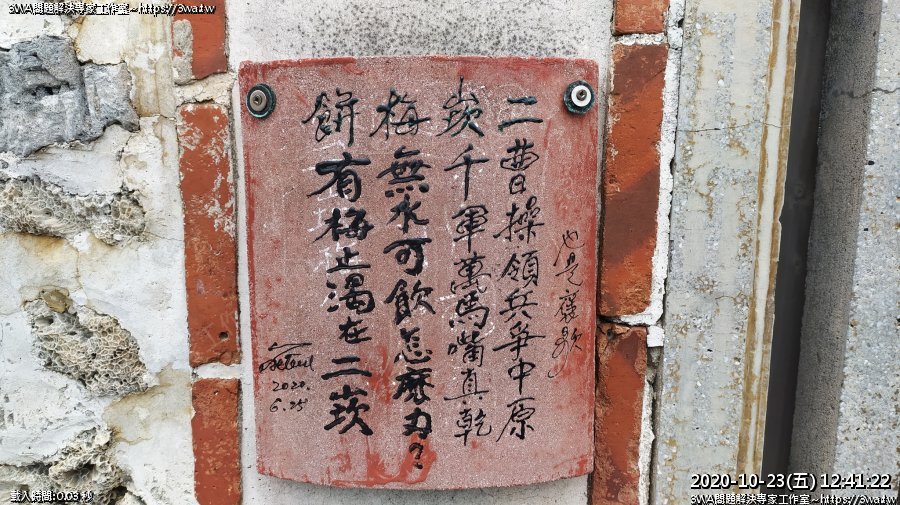 3WA問題解決專家工作室~https://3wa.tw
也是褒歌
二曹操領兵爭中原
崁千軍萬馬嘴真乾
梅無水可飲怎麼办?
餅有梅止渴在二崁
2020.
6.25
載入時間:0.03 秒
2020-10-23(五) 12:41:22
3WA問題解決專家工作室~https://3wa.tw